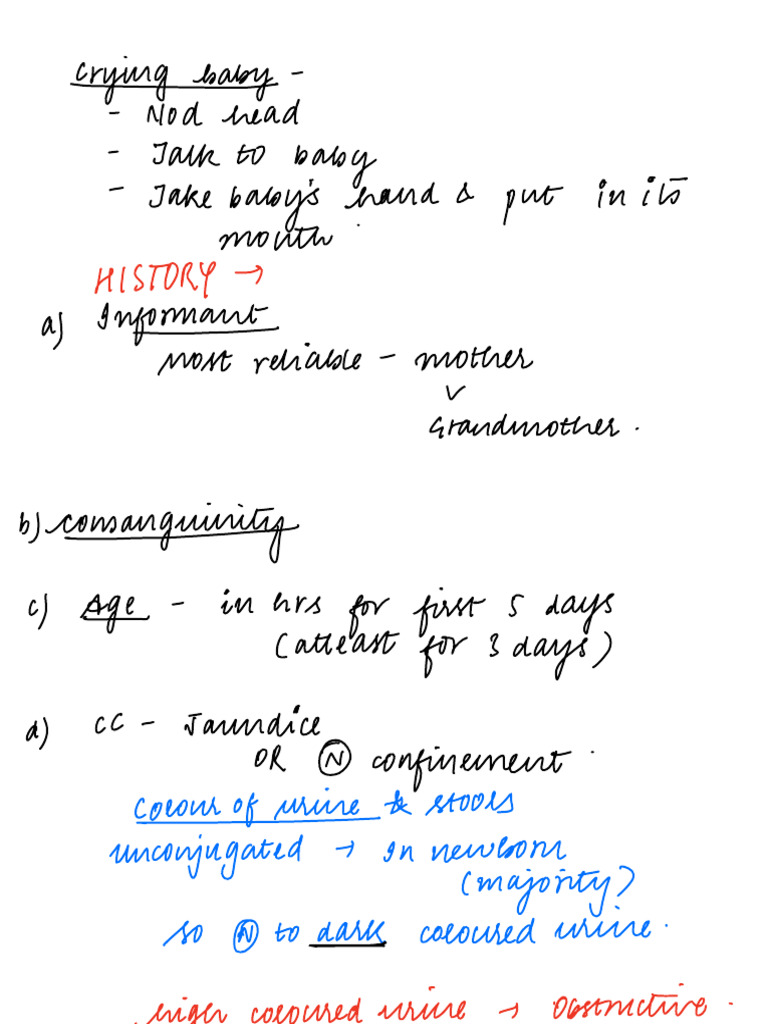 Crying baby -
- Nod head
- Talk to baby
- Take baby's hand & put in its
mouth.
HISTORY →
a) Informant
Most reliable - mother
v
Grandmother.
b) consanguinity
c) Age - in hrs for first 5 days
(atleast for 3 days)
d) CC - Jaundice
OR Ⓝ confinement.
Colour of urine & stools
unconjugated → In newborn
(majority)
so Ⓝ to dark coloured urine.
higer coloured urine → Obstructive.